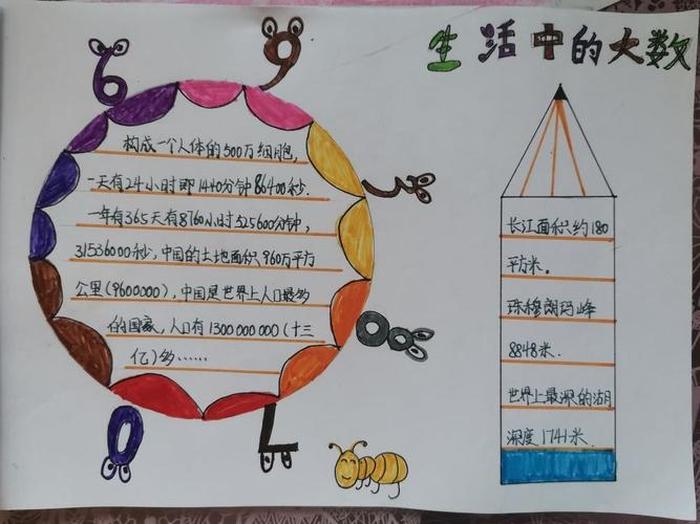 生活中的大数
6
9
3
8
7
0
构成一个人体的500万细胞,
一天有24小时即1440分钟86400秒.
一年有365天有8760小时525600分钟,
31536000秒,中国的土地面积960万平方
公里(9600000),中国是世界上人口最多
的国家,人口有1300000000(十三
亿)多……
长江面积约180
平方米。
珠穆朗玛峰
8848米.
世界上最深的湖
深度1741米.